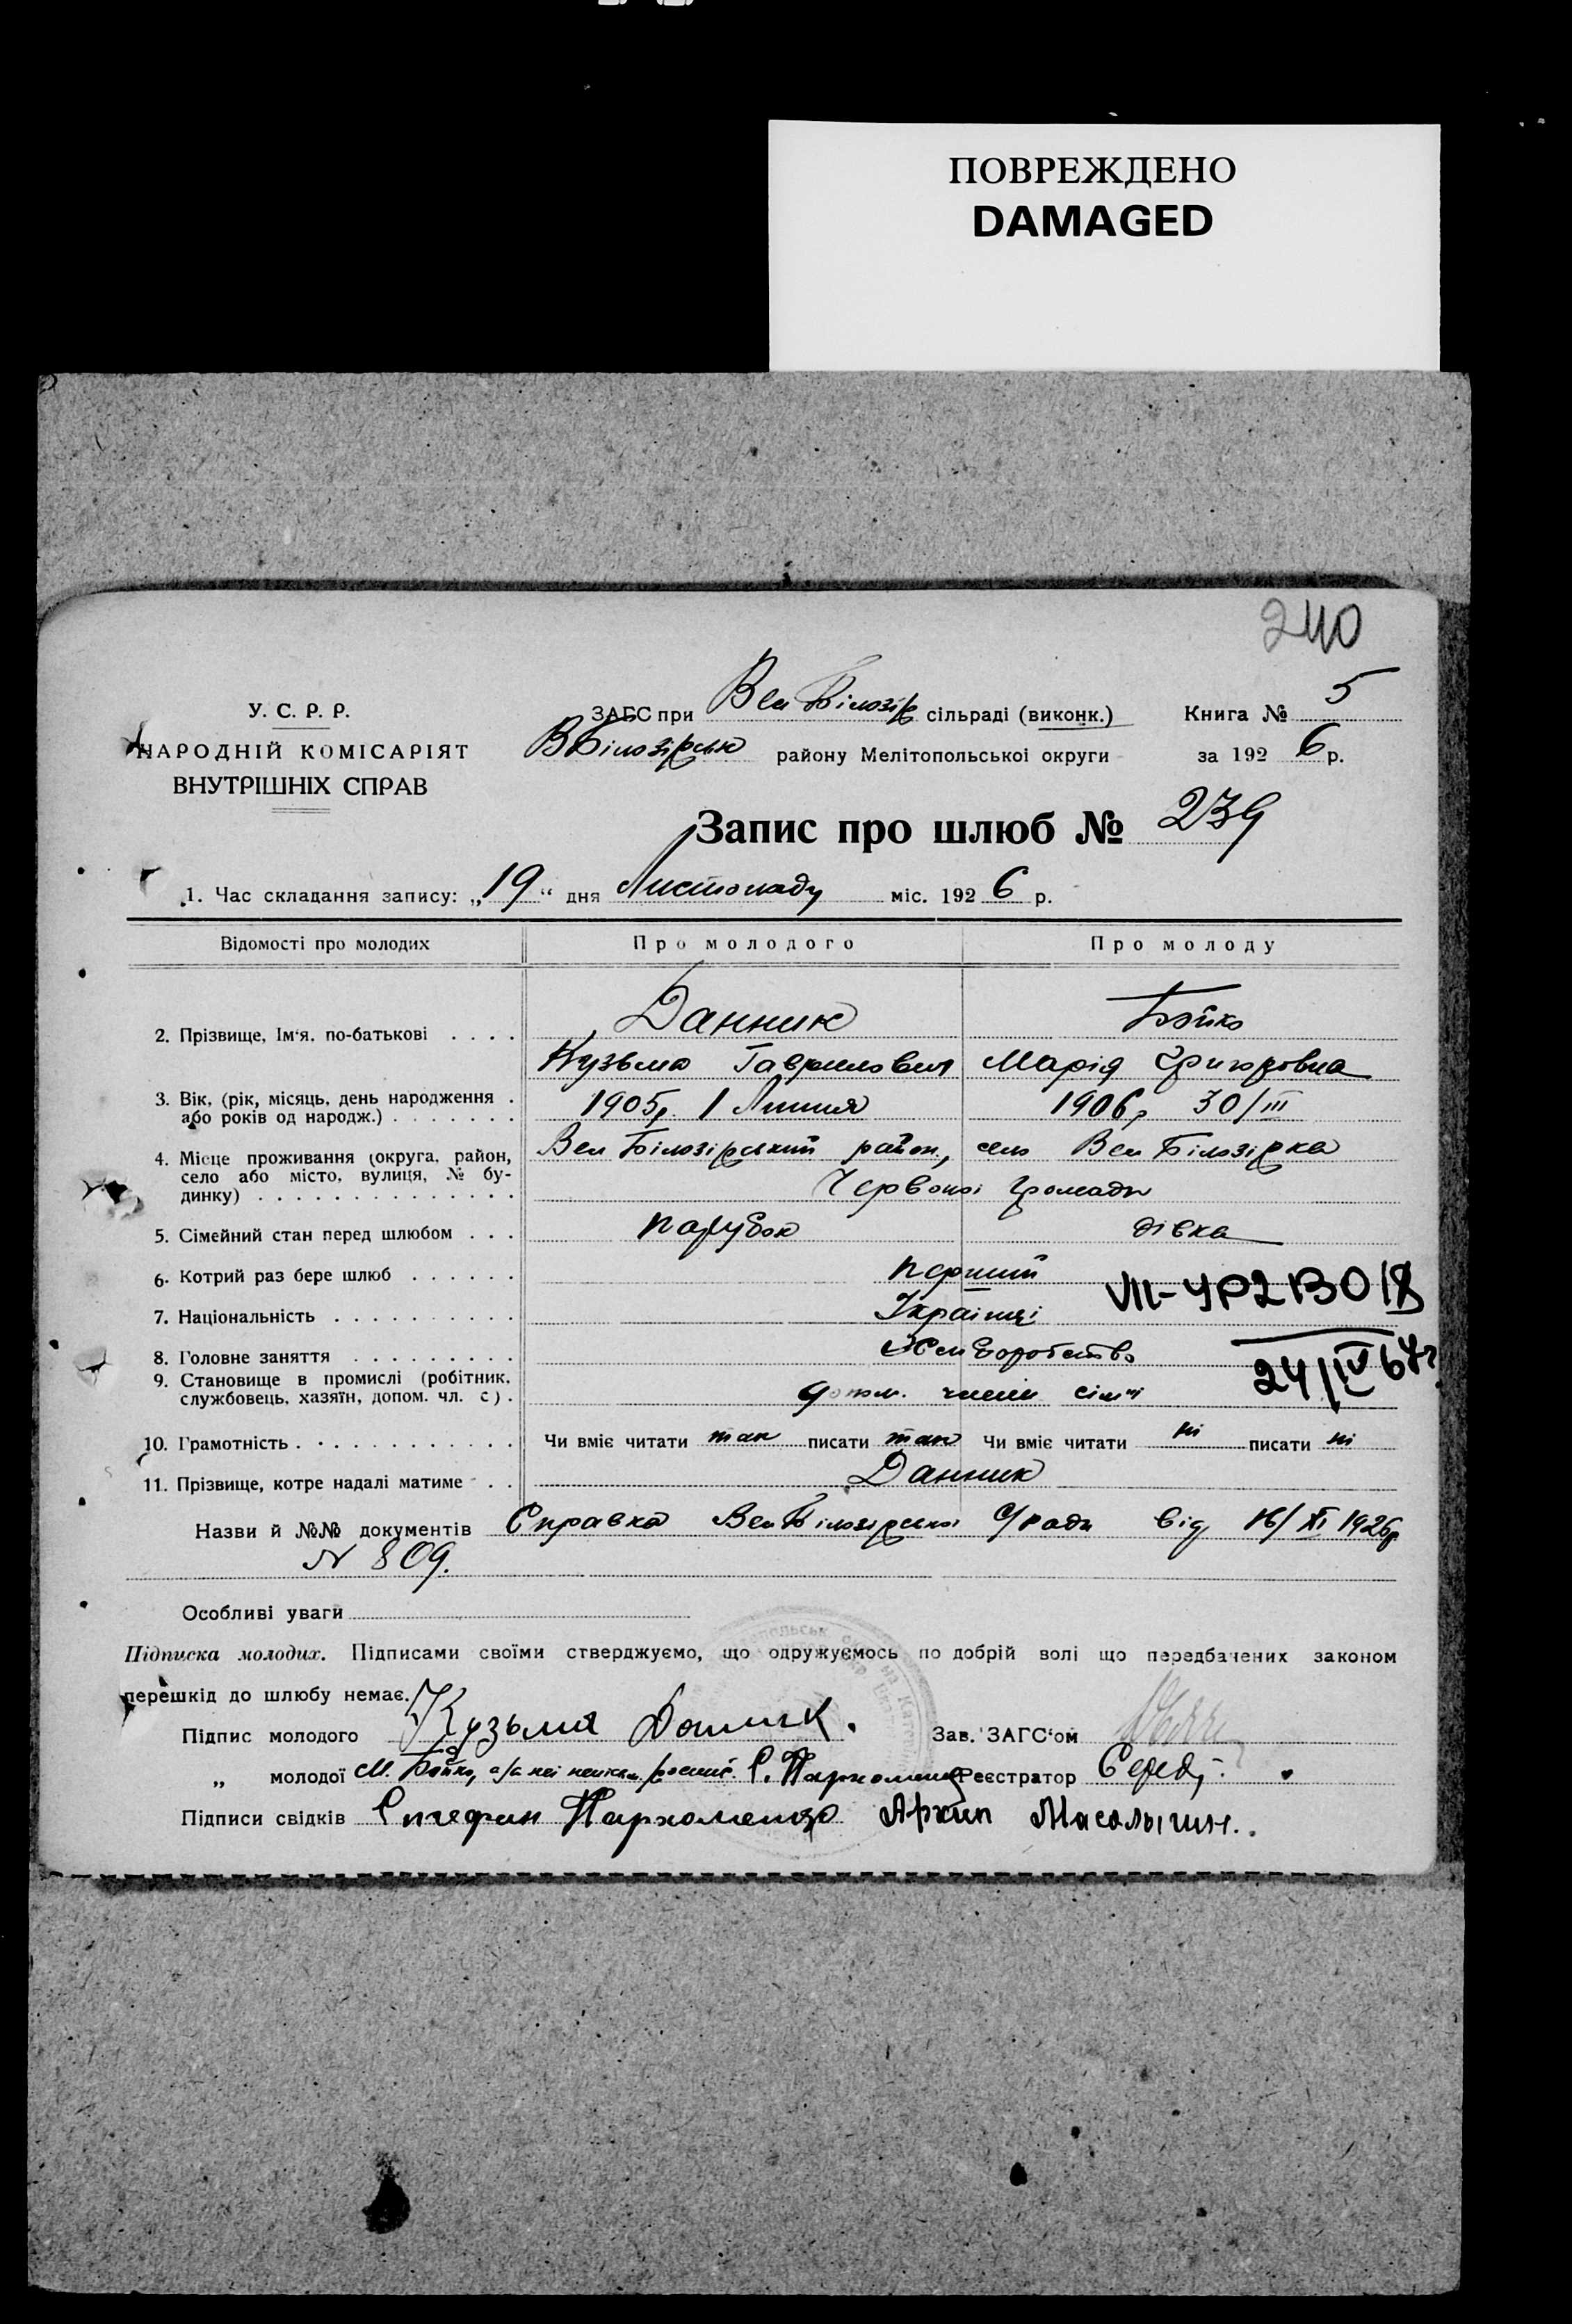 ПОВРЕЖДЕНО
DAMAGED
240
У. С. Р. Р.
НАРОДНІЙ КОМІСАРІЯТ
ВНУТРІШНІХ СПРАВ
ЗАГС при Вел Білозір сільраді (виконк.)
В Білозірськ району Мелітопольської округи
Книга № 5
за 1926 р.
Запис про шлюб № 239
1. Час складання запису: „19“ дня Листопаду міс. 1926 р.
Відомості про молодих Про молодого Про молоду
2. Прізвище, Ім'я, по-батькові . . . . Данник Бойко
Кузьма Гаврилович Марія Григоровна
3. Вік, (рік, місяць, день народження . 1905р. 1 Липня 1906р 30/III
або років од народж.) . . . . . . .
4. Місце проживання (округа, район, Вел Білозірський район, село Вел Білозірка
село або місто, вулиця, № бу-
динку) . . . . . . . . . . . . . . Червоної Громади
5. Сімейний стан перед шлюбом . . . парубок дівка
6. Котрий раз бере шлюб . . . . . . перший
7. Національність . . . . . . . . . . Українці
24/IV 64г
8. Головне заняття . . . . . . . . .
9. Становище в промислі (робітник, допом. член сім'ї
службовець, хазяїн, допом. чл. с) .
10. Грамотність . . . . . . . . . . . . Чи вміє читати так писати так Чи вміє читати ні писати ні
11. Прізвище, котре надалі матиме . . Данник
Назви й №№ документів Справка Вел Білозірської С/ради від 16/XI 1926р
N 809.
Особливі уваги
Підписка молодих. Підписами своїми стверджуємо, що одружуємось по добрій волі що передбачених законом
перешкід до шлюбу немає.
Підпис молодого Кузьма Данник. Зав. ЗАГС'ом
„ молодої М. Бойко, а/за неї С. Пархоменко Реєстратор
Підписи свідків Пархоменко Архип Масалыгин.